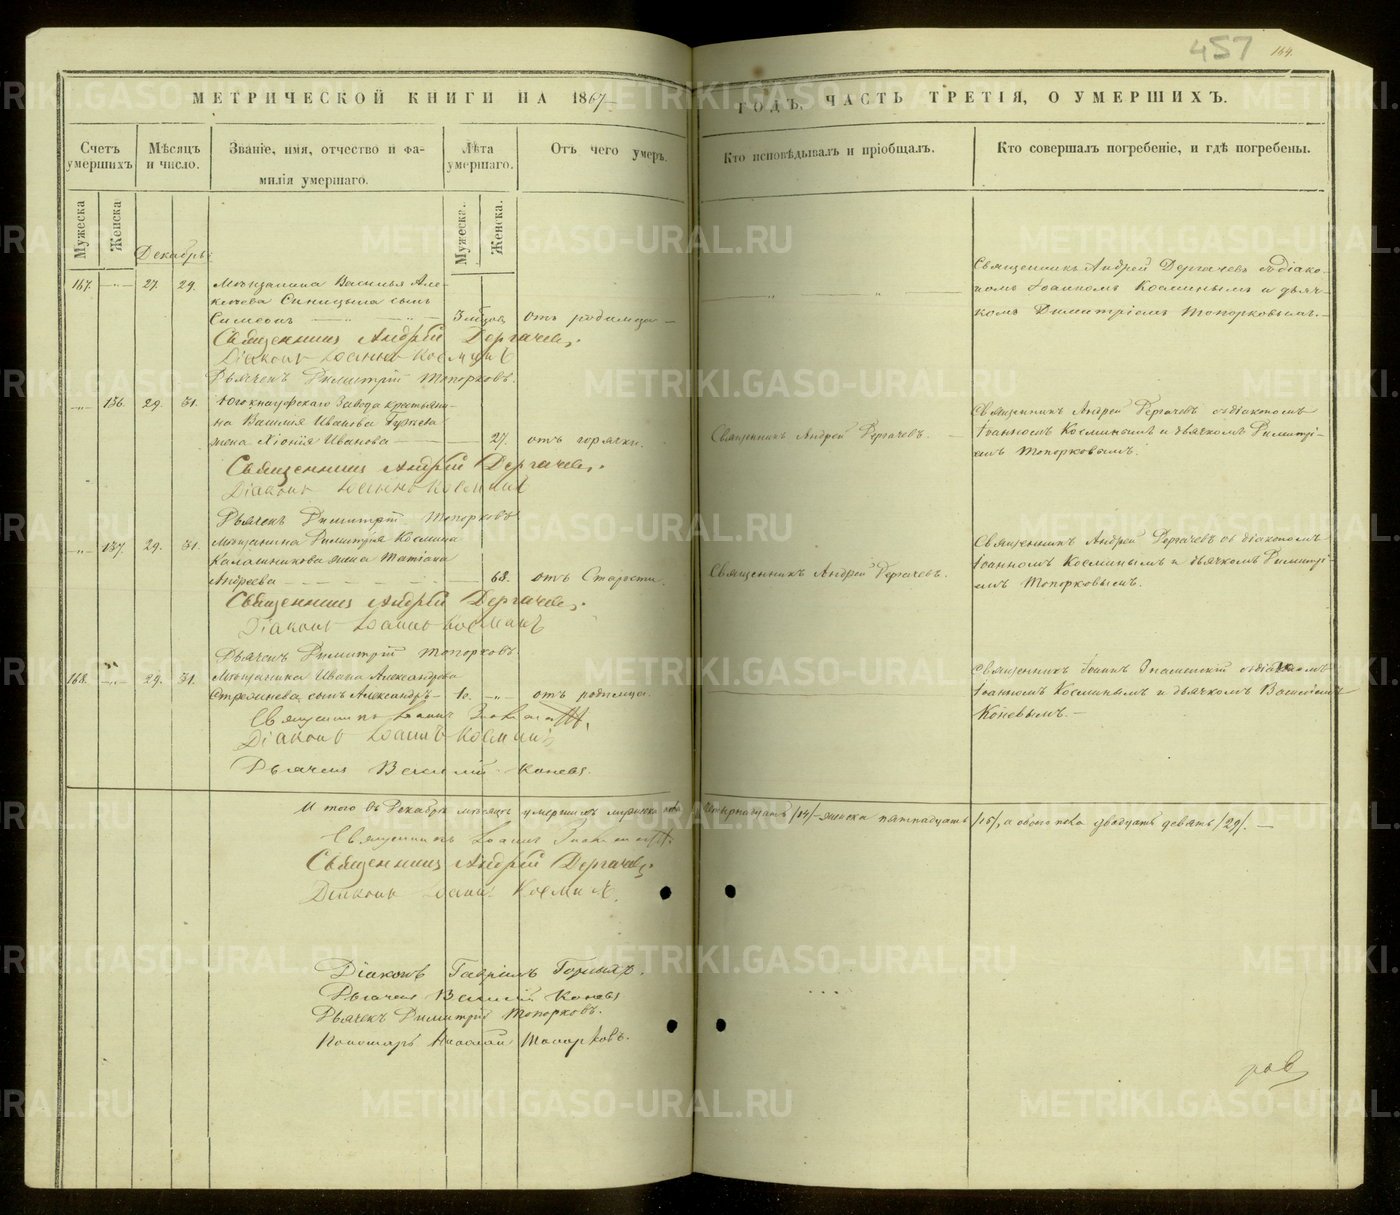 457 164.
МЕТРИЧЕСКОЙ КНИГИ НА 1867 ГОДЪ, ЧАСТЬ ТРЕТІЯ, О УМЕРШИХЪ.
Счетъ умершихъ.
Мѣсяцъ и число.
Званіе, имя, отчество и фамилія умершаго.
Лѣта умершаго.
Отъ чего умеръ.
Кто исповѣдывалъ и пріобщалъ.
Кто совершалъ погребеніе, и гдѣ погребены.
Мужеска
Женска
Мужеска.
Женска.
Декабрь:
167. 27. 29. Мѣщанина Василья Але-
ксѣева Синицына сынъ
Симеонъ 3 мѣсяцовъ отъ родимца
Священникъ Андрей Дергачевъ съ діако-
номъ Іоанномъ Косминымъ и дьяч-
комъ Димитріемъ Топорковымъ.
Священникъ Андрей Дергачевъ.
Діаконъ Іоаннъ Косминъ
Дьячекъ Димитрій Топорковъ.
136. 29. 31. Югокнауфскаго завода крестьяни-
на Василія Иванова
жена Хіонія Иванова 27. отъ горячки.
Священникъ Андрей Дергачевъ.
Священникъ Андрей Дергачевъ съ діакономъ
Іоанномъ Косминымъ и дьячкомъ Димитрі-
емъ Топорковымъ.
Священникъ Андрей Дергачевъ.
Діаконъ Іоаннъ Косминъ
Дьячекъ Димитрій Топорковъ
137. 29. 31. Мѣщанина Димитрія Космина
Калашникова жена Татіана
Андреева 68. отъ старости.
Священникъ Андрей Дергачевъ.
Священникъ Андрей Дергачевъ съ діакономъ
Іоанномъ Косминымъ и дьячкомъ Димитрі-
емъ Топорковымъ.
Священникъ Андрей Дергачевъ.
Діаконъ Іоаннъ Косминъ
Дьячекъ Димитрій Топорковъ.
168. 29. 31. Мѣщанина Ивана Александрова
сынъ Александръ 1о. отъ родимца.
Священникъ Іоаннъ Знаменскій съ діакономъ
Іоанномъ Косминымъ и дьячкомъ Василіемъ
Коневымъ.
Священникъ Іоаннъ
Діаконъ Іоаннъ Косминъ
Дьячекъ Василій Коневъ.
И того въ Декабрѣ мѣсяцѣ умершихъ мужеска пола четырнадцать /14/ женска пятнадцать /15/, а обоего пола двадцать девять /29/.
Священникъ Іоаннъ
Священникъ Андрей Дергачевъ.
Діаконъ Іоаннъ Косминъ.
Діаконъ Гавріилъ Горныхъ.
Дьячекъ Василій Коневъ
Дьячекъ Димитрій Топорковъ.
Пономарь Николай Топорковъ.
METRIKI.GASO-URAL.RU